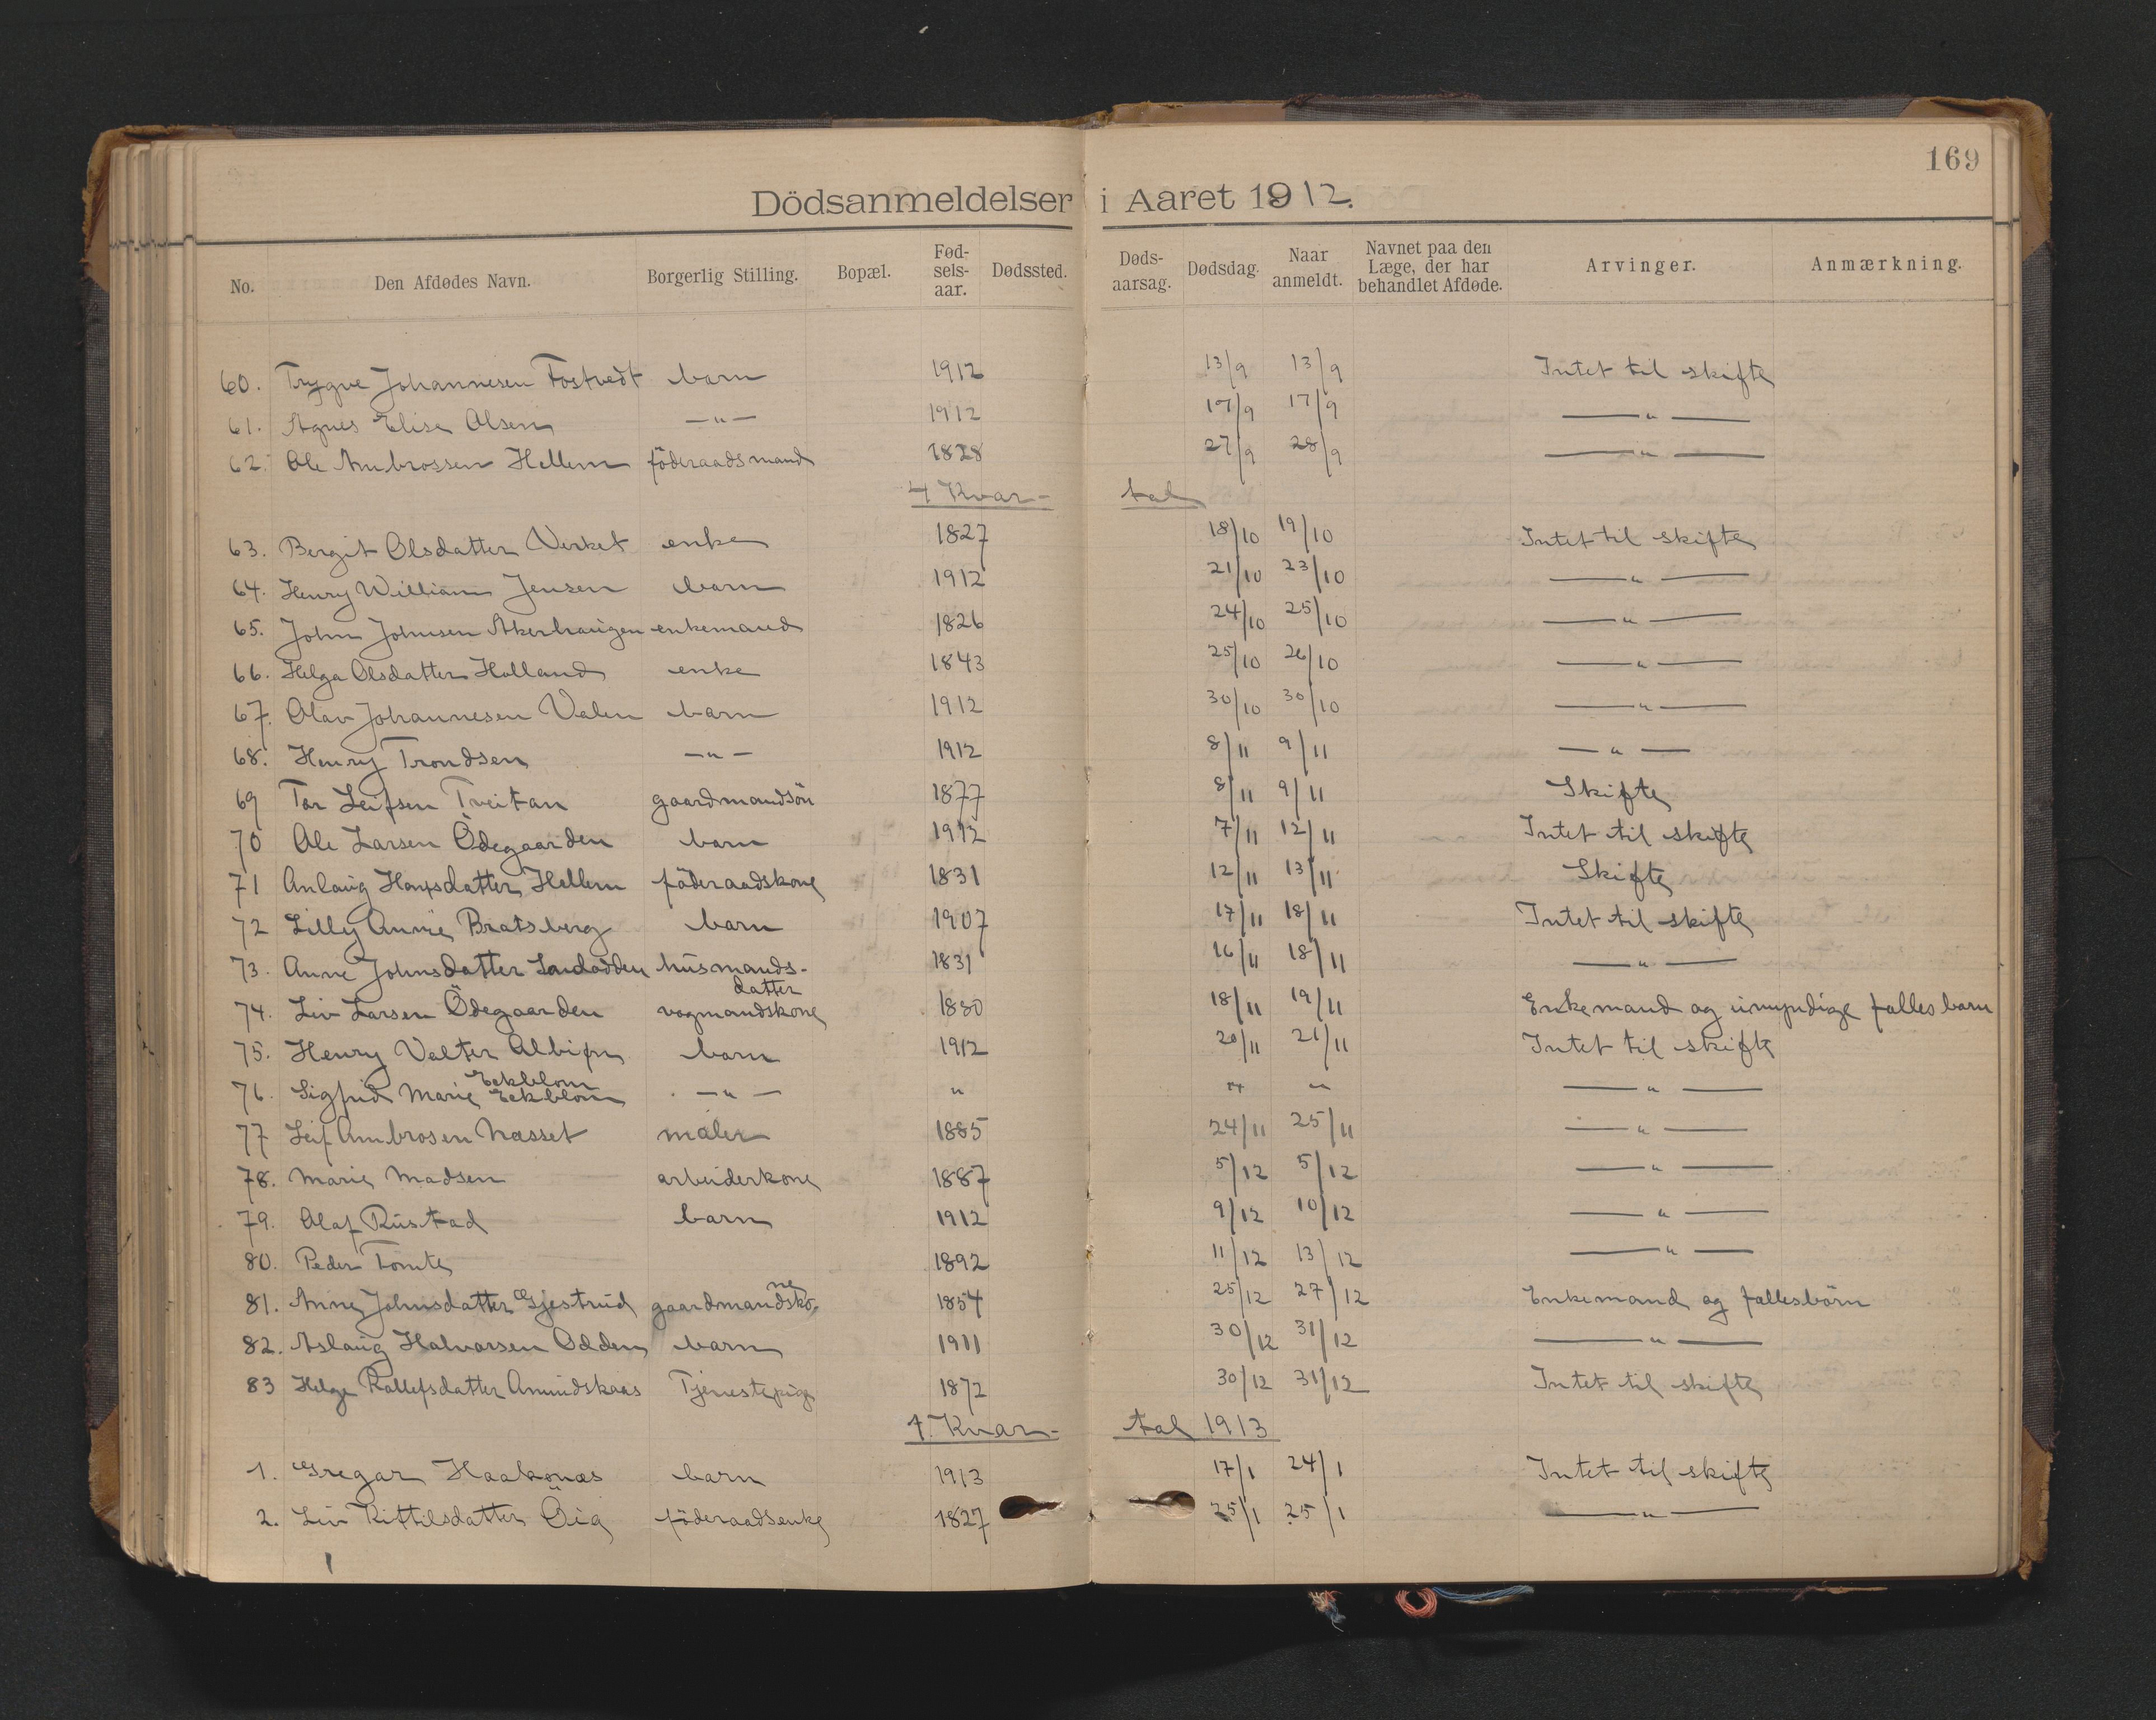 169
Dödsanmeldelser i Aaret 1912.
No. Den Afdødes Navn. Borgerlig Stilling. Bopæl. Fødselsaar. Dødssted. Dødsaarsag. Dødsdag. Naar anmeldt. Navnet paa den Læge, der har behandlet Afdøde. Arvinger. Anmærkning.
60. Trygve Johannesen Fostvedt barn 1912 13/9 13/9 Intet til skifte
61. Agnes Elise Olsen —"— 1912 17/9 17/9 —"—
62. Ole Ambrossen Hellem föderaadsmand 1828 27/9 28/9 —"—
4 Kvartal
63. Bergit Olsdatter Verket enke 1827 18/10 19/10 Intet til skifte
64. Henry William Jensen barn 1912 21/10 23/10 —"—
65. John Johnsen Akerhaugen enkemand 1826 24/10 25/10 —"—
66. Helga Olsdatter Holland enke 1843 25/10 26/10 —"—
67. Olav Johannesen Valen barn 1912 30/10 30/10 —"—
68. Henry Trondsen —"— 1912 8/11 9/11 —"—
69 Tor Leifsen Tveitan gaardmandsön 1877 8/11 9/11 Skifte
70 Ole Larsen Ödegaarden barn 1912 7/11 12/11 Intet til skifte
71 Anlaug Hansdatter Hellem föderaadskone 1831 12/11 13/11 Skifte
72 Lilly Annie Bratsberg barn 1907 17/11 18/11 Intet til skifte
73. Anne Johnsdatter husmands-datter 1831 16/11 18/11 —"—
74. Liv Larsen Ödegaarden vogmandskone 1880 18/11 19/11 Enkemand og umyndige falles barn
75. Henry Valter Albifn barn 1912 20/11 21/11 Intet til skifte
Eekblom
76. Sigfrid Marie Eekblom —"— " " " —"—
77 Leif Ambrosen Næsset maler 1885 24/11 25/11 —"—
78. Marie Madsen arbeiderkone 1887 5/12 5/12 —"—
79. Olaf Rustad barn 1912 9/12 10/12 —"—
80. Peder Tomte 1892 11/12 13/12 —"—
81. Anne Johnsdatter Gjestrud gaardmandskone 1854 25/12 27/12 Enkemand og fallesbörn
82. Aslaug Halvorsen Odden barn 1911 30/12 31/12 —"—
83 Helge Rollefsdatter Amundskaas Tjenestepige 1872 30/12 31/12 Intet til skifte
1. Kvartal 1913
1. Gregar Haakonæs barn 1913 17/1 24/1 Intet til skifte
2. Liv Kittilsdatter Öig föderaadsenke 1827 25/1 25/1 —"—